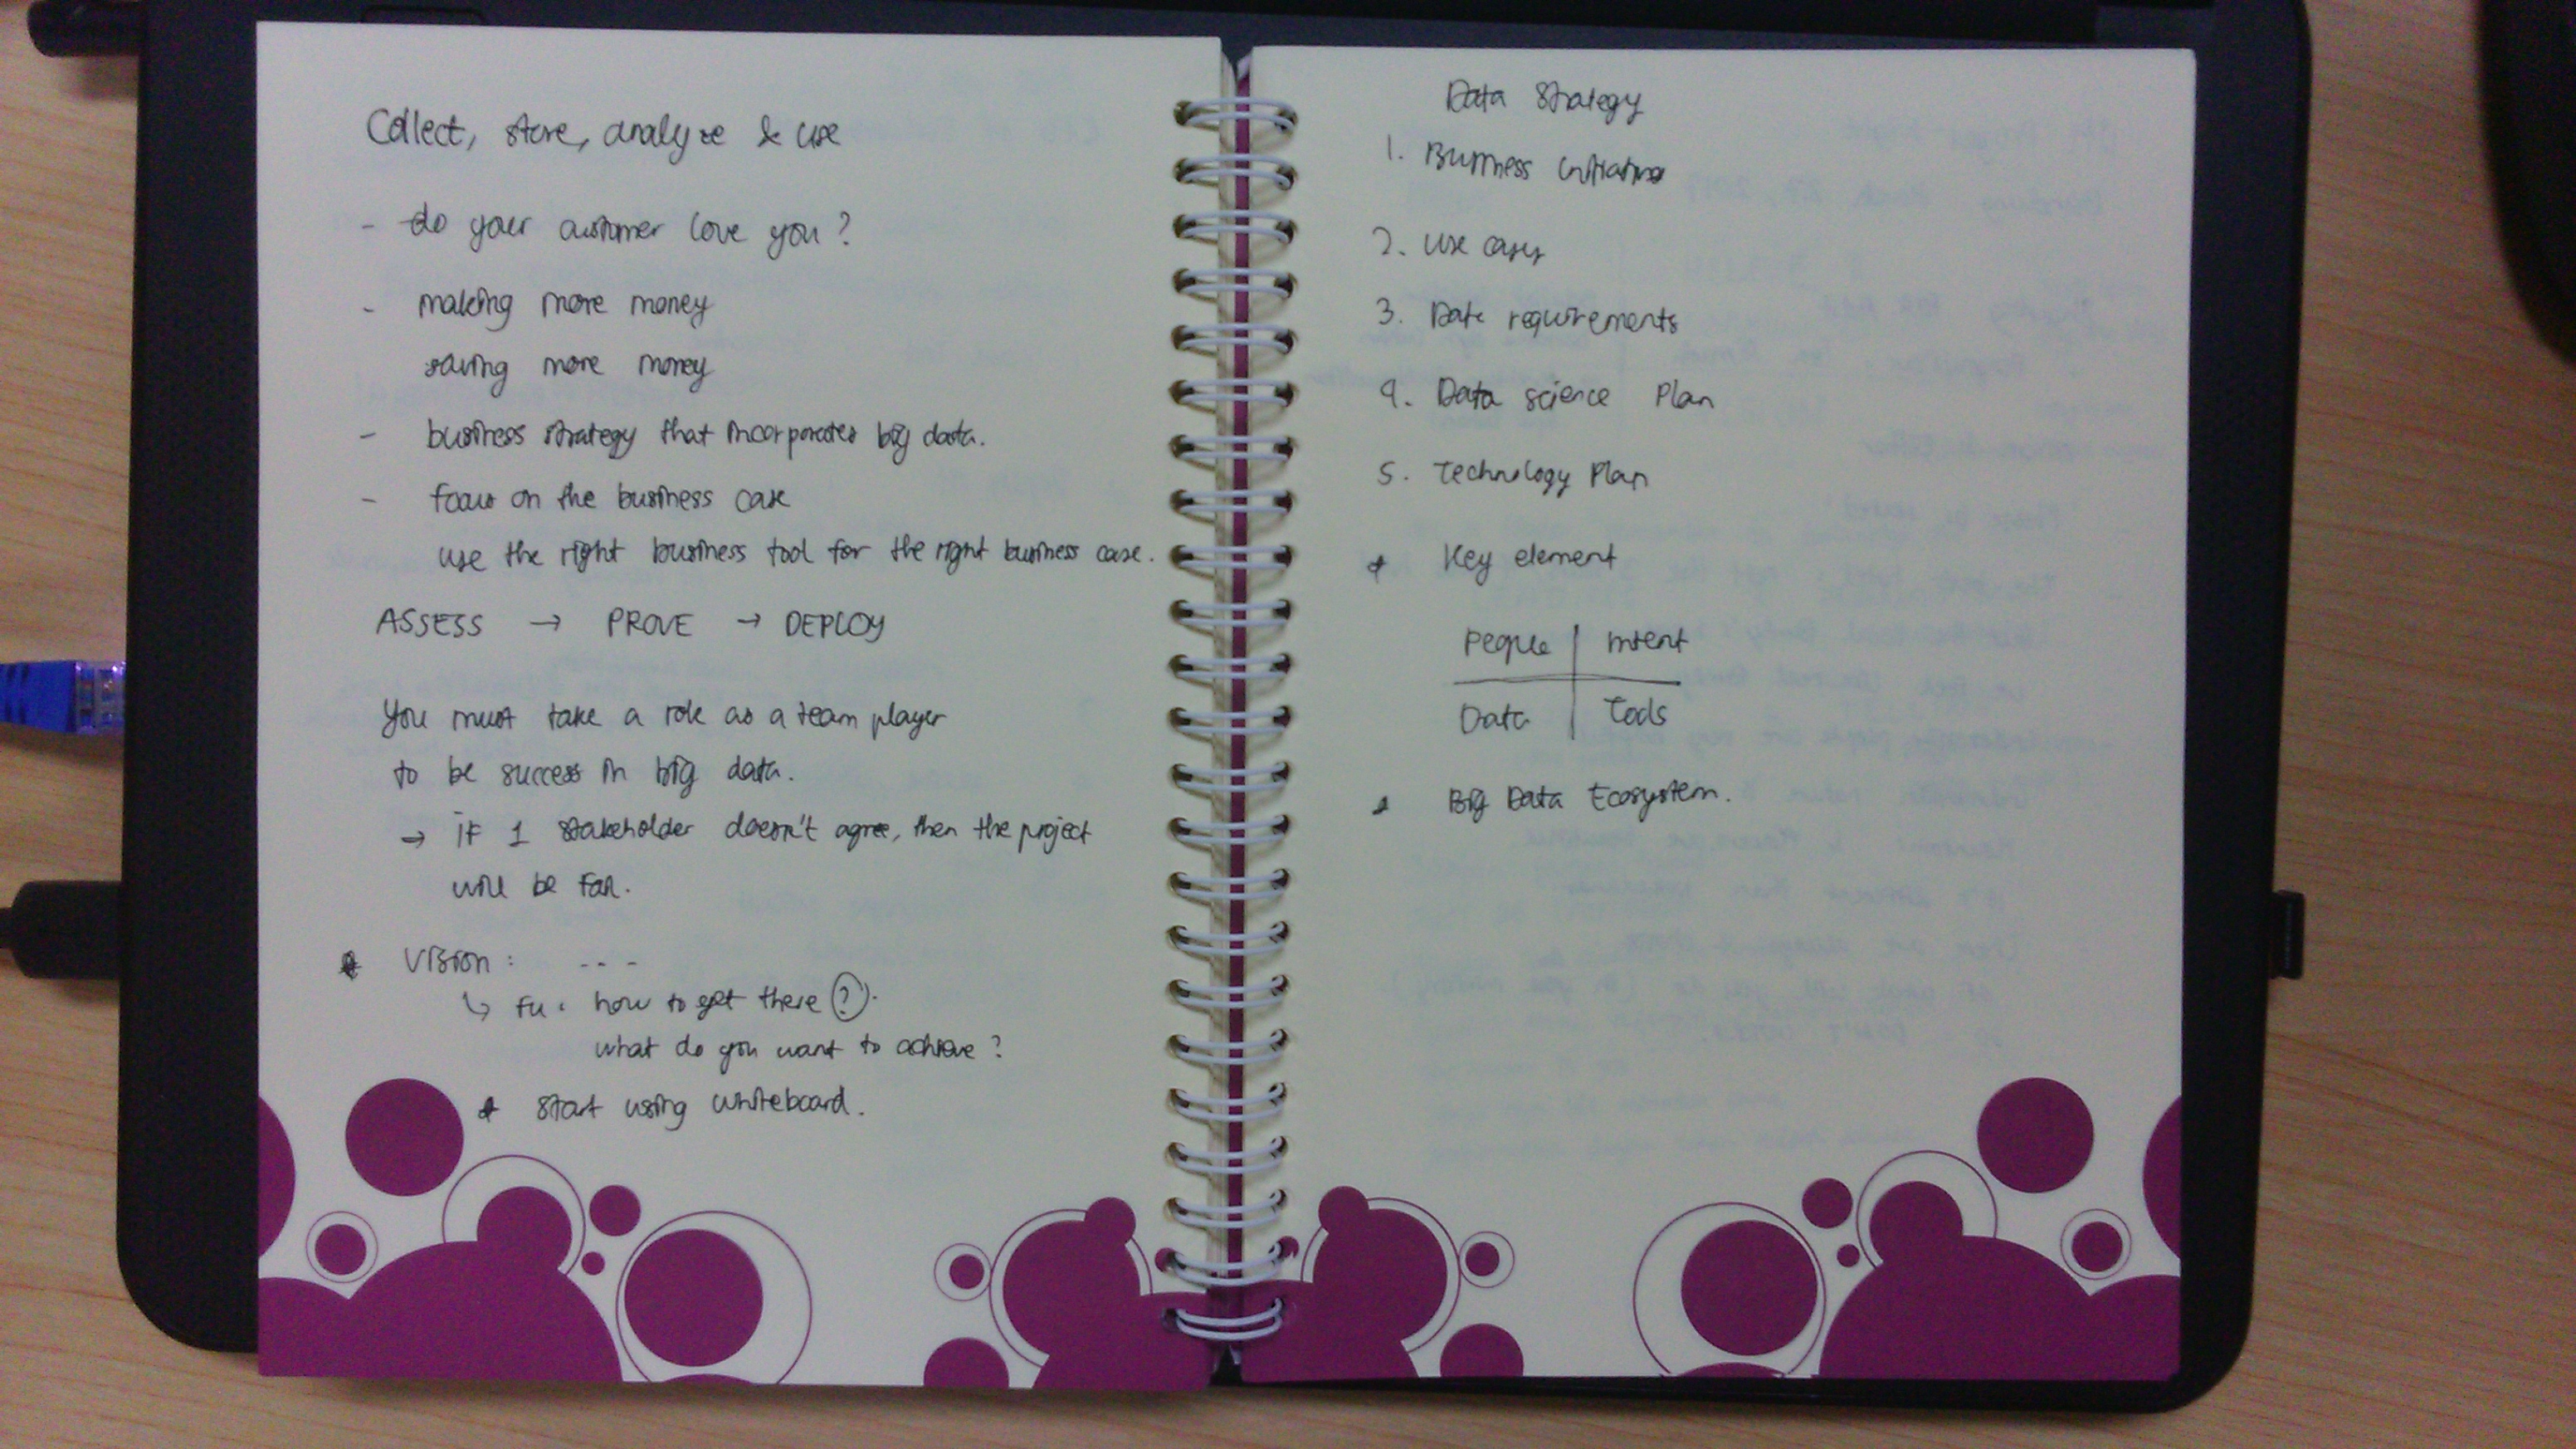 Collect, store, analyze & use
- do your customer love you?
- making more money
saving more money
- business strategy that incorporates big data.
- focus on the business case
use the right business tool for the right business case.
ASSESS → PROVE → DEPLOY
You must take a role as a team player
to be success in big data.
→ if 1 stakeholder doesn't agree, then the project
will be fail.
* Vision: ---
↳ Fu: how to get there (?).
what do you want to achieve?
* start using whiteboard.
Data Strategy
1. Business Initiative
2. Use cases
3. Data requirements
4. Data science Plan
5. Technology Plan
* Key element
People | Intent
Data | Tools
* Big Data Ecosystem.